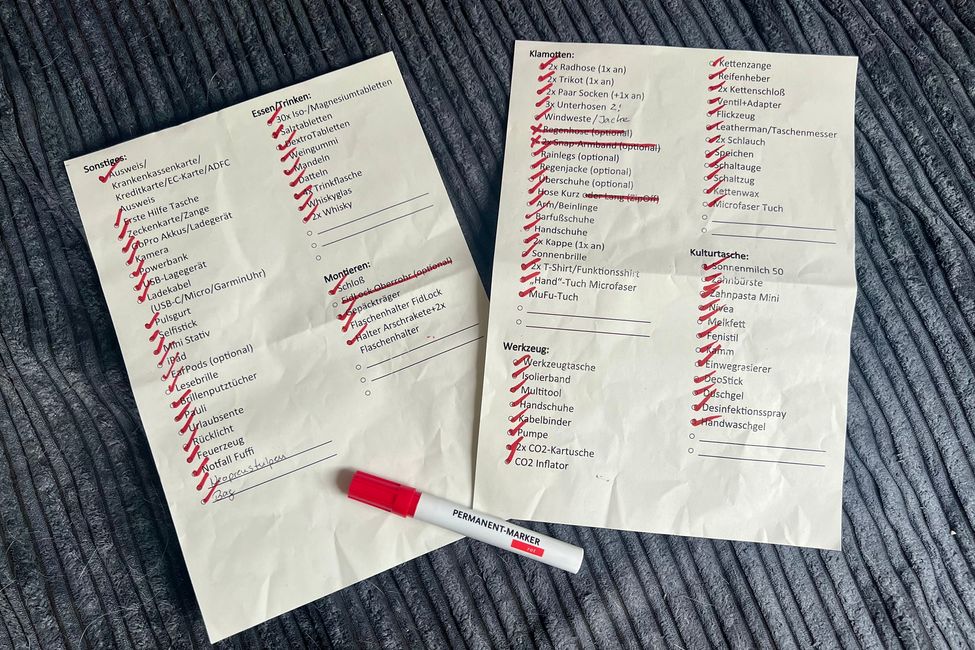 Sonstiges:
Ausweis/
Krankenkassenkarte/
Kreditkarte/EC-Karte/ADFC
Ausweis
Erste Hilfe Tasche
Zeckenkarte/Zange
GoPro Akkus/Ladegerät
Kamera
Powerbank
USB-Lagegerät
Ladekabel
(USB-C/Micro/GarminUhr)
Pulsgurt
Selfistick
Mini Stativ
IPad
EarPods (optional)
Lesebrille
Brillenputztücher
Pauli
Urlaubsente
Rücklicht
Feuerzeug
Notfall Fuffi
Neoprenstulpen
Bag
Essen/Trinken:
30x Iso-/Magnesiumtabletten
Salztabletten
DextroTabletten
Weingummi
Mandeln
Datteln
Trinkflasche
Whiskyglas
2x Whisky
Montieren:
Schloß
FidLock Oberrohr (optional)
Gepäckträger
Flaschenhalter FidLock
Halter Arschrakete+2x
Flaschenhalter
Klamotten:
2x Radhose (1x an)
2x Trikot (1x an)
2x Paar Socken (+1x an)
3x Unterhosen 2!
Windweste/Jacke
Regenhose (optional)
2x Snap-Armband (optional)
Rainlegs (optional)
Regenjacke (optional)
Überschuhe (optional)
Hose Kurz oder Lang (ZipOff)
Arm/Beinlinge
Barfußschuhe
Handschuhe
2x Kappe (1x an)
Sonnenbrille
2x T-Shirt/Funktionsshirt
„Hand“-Tuch Microfaser
MuFu-Tuch
Werkzeug:
Werkzeugtasche
Isolierband
Multitool
Handschuhe
Kabelbinder
Pumpe
2x CO2-Kartusche
CO2 Inflator
Kettenzange
Reifenheber
2x Kettenschloß
Ventil+Adapter
Flickzeug
Leatherman/Taschenmesser
2x Schlauch
Speichen
Schaltauge
Schaltzug
Kettenwax
Microfaser Tuch
Kulturtasche:
Sonnenmilch 50
Zahnbürste
Zahnpasta Mini
Nivea
Melkfett
Fenistil
Kamm
Einwegrasierer
DeoStick
Duschgel
Desinfektionsspray
Handwaschgel
PERMANENT-MARKER
rot